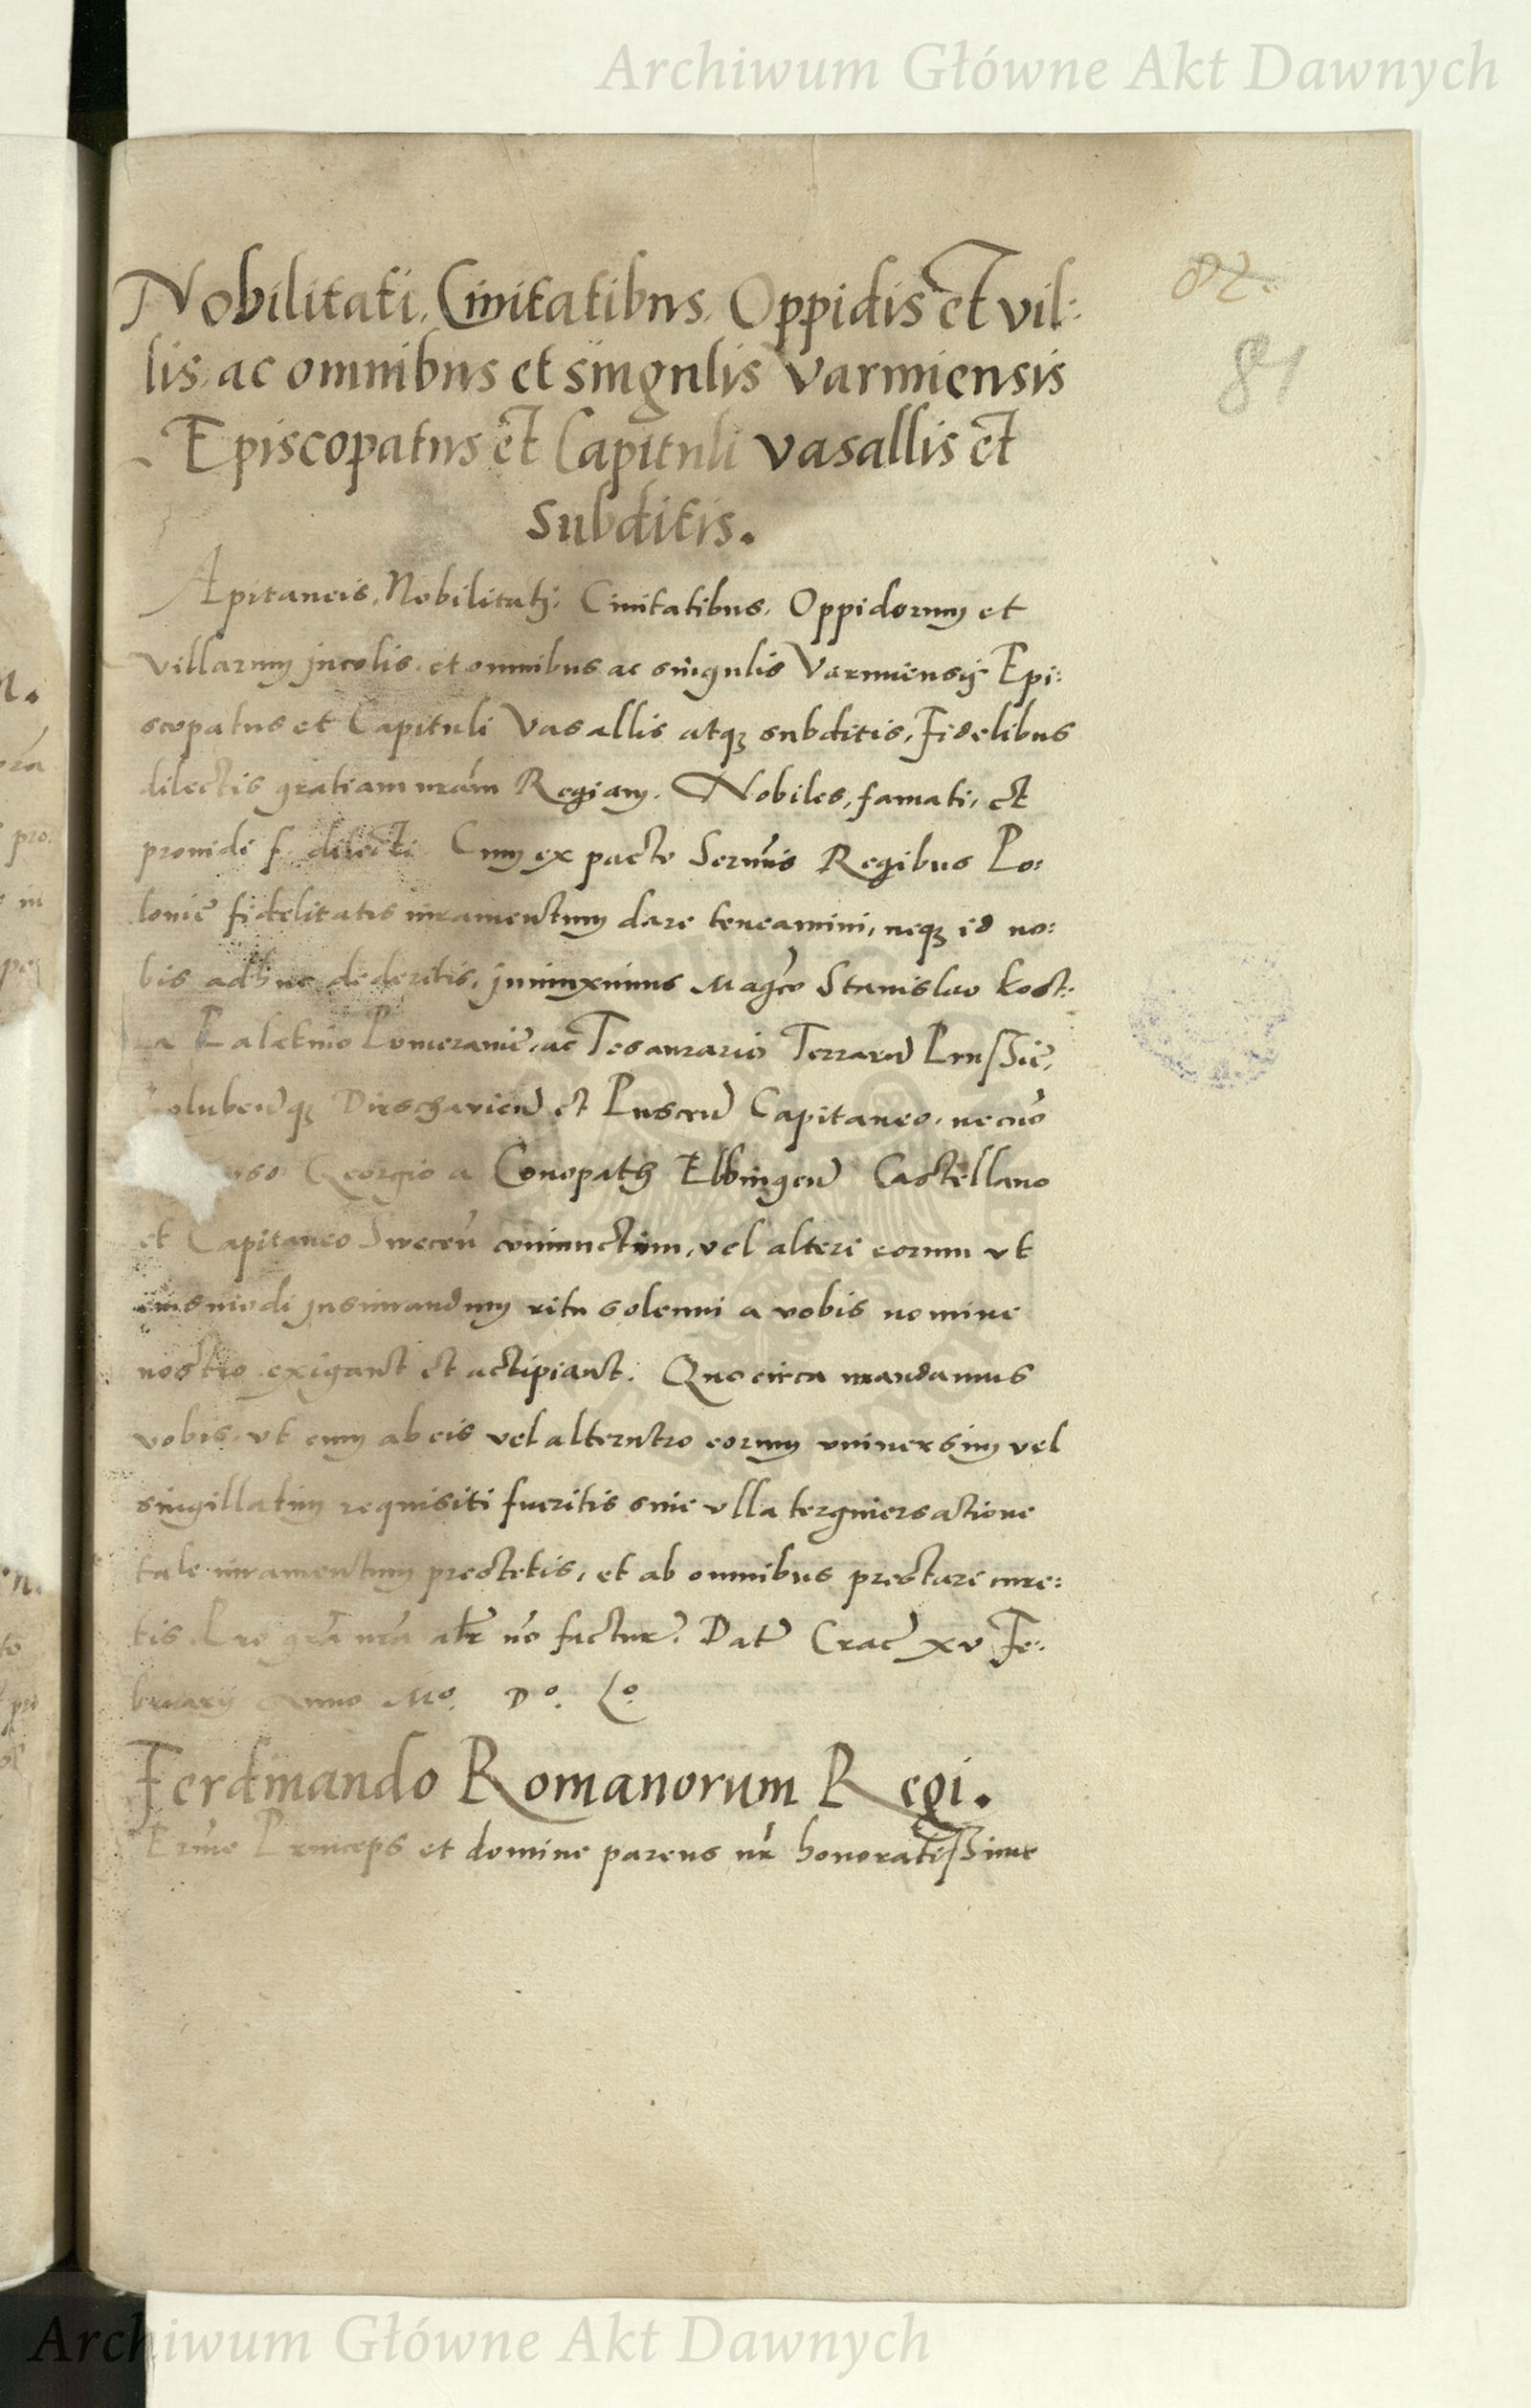 Archiwum Główne Akt Dawnych
82.
81
Nobilitati, Civitatibus, Oppidis et vil:
lis, ac omnibus et singulis Varmiensis
Episcopatus et Capituli vasallis et
subditis.
Apitaneis, Nobilitati, Civitatibus, Oppidorum et
villarum incolis, et omnibus ac singulis Varmiensis Epi:
scopatus et Capituli Vasallis atq3 subditis, Fidelibus
dilectis gratiam nrãm Regiam. Nobiles, famati, et
providi f. dilecti. Cum ex pacto Sermis Regibus Po:
lonie fidelitatis iuramentum dare teneamini, neq3 id no:
bis adhuc dederitis, iniunximus Magco Stanislao Kost:
ka Palatino Pomeranie, ac Tesaurario Terrarum Prussie,
olubenq3 Dirschavien et Puscen Capitaneo, necno
Georgio a Conopath Elbingen Castellano
et Capitaneo Swecen coniunctim, vel alteri eorum ut
eiusmodi iusiurandum ritu solenni a vobis nomine
nostro exigant et accipiant. Quocirca mandamus
vobis, ut cum ab eis vel alterutro eorum universim vel
singillatim requisiti fueritis sine ulla tergiversatione
tale iuramentum prestetis, et ab omnibus prestari cure:
tis. Pro gra nra alr no factur. Dat Crac xv Fe:
bruarij Anno Mo. Do. Lo.
Ferdinando Romanorum Regi.
Erme Princeps et domine parens nr honoratissime
Archiwum Główne Akt Dawnych